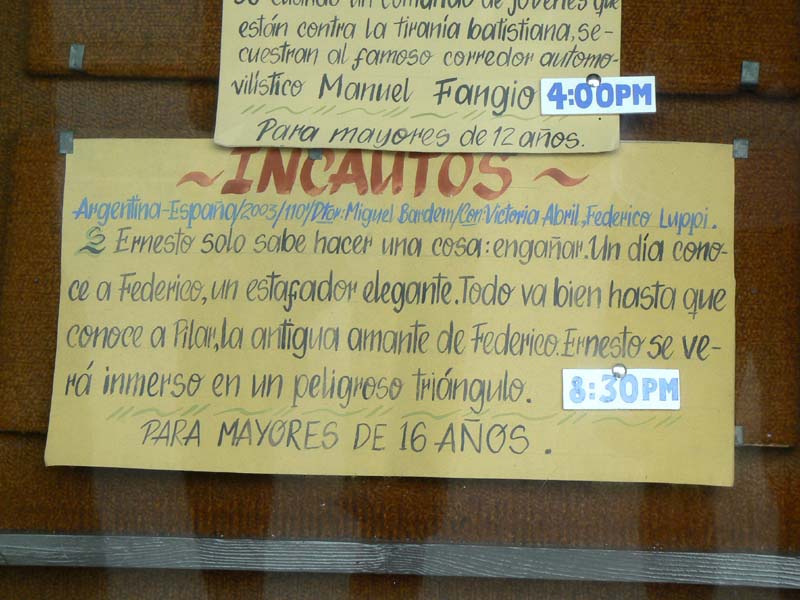 se cuando un comando de jóvenes que
están contra la tiranía batistiana, se-
cuestran al famoso corredor automo-
vilístico Manuel Fangio
4:00PM
Para mayores de 12 años.
~INCAUTOS~
Argentina-España/2003/110'/Dtor: Miguel Bardem/Con: Victoria Abril, Federico Luppi.
Ernesto solo sabe hacer una cosa: engañar. Un día cono-
ce a Federico, un estafador elegante. Todo va bien hasta que
conoce a Pilar, la antigua amante de Federico. Ernesto se ve-
rá inmerso en un peligroso triángulo.
8:30PM
PARA MAYORES DE 16 AÑOS.